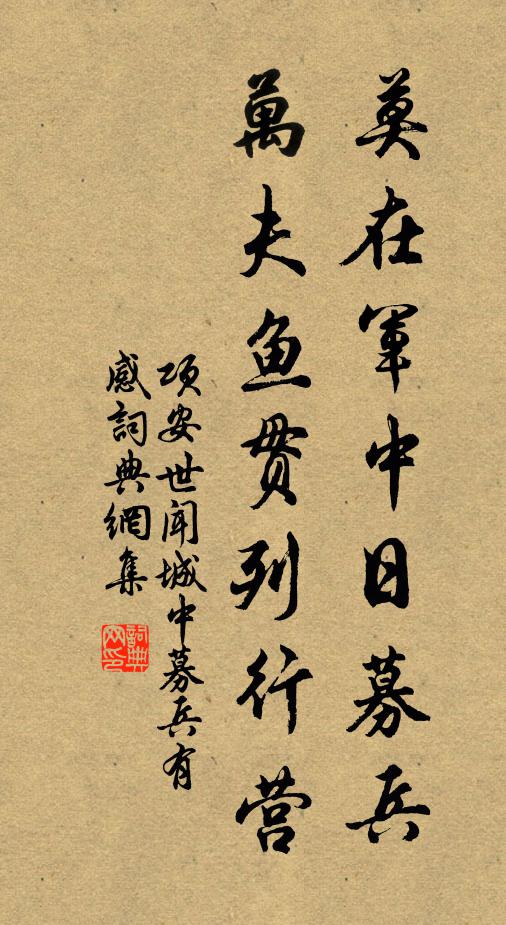 莫在軍中日募兵
萬夫鱼贯列行营
项安世闻城中募兵有
感詞典網集
詞典
网印